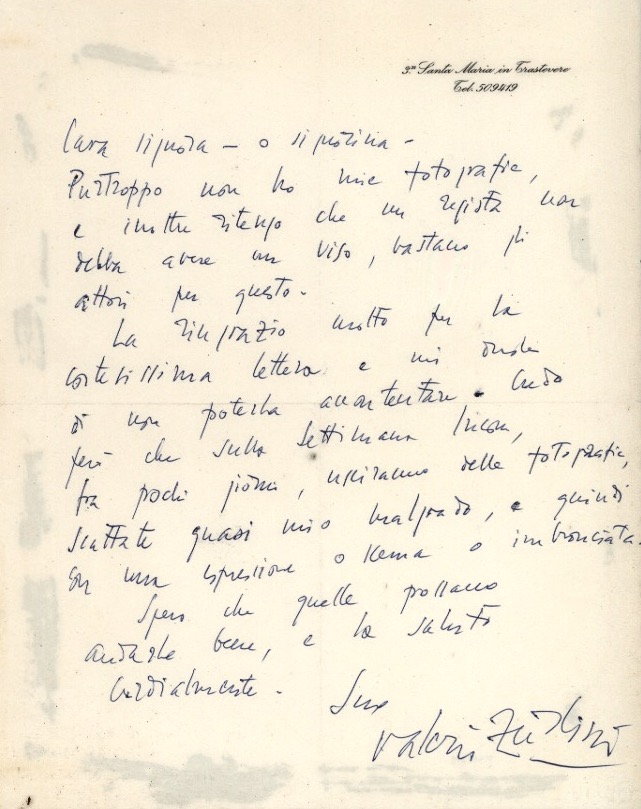 3, Santa Maria in Trastevere
Tel. 509419
Cara signora – o signorina –
Purtroppo non ho mie fotografie,
e inoltre ritengo che un regista non
debba avere un viso, bastano gli
attori per questo.
La ringrazio molto per la
cortesissima lettera e mi duole
di non poterla accontentare. Credo
però che sulla Settimana Incom,
fra pochi giorni, usciranno delle fotografie,
scattate quasi mio malgrado, e quindi
con una espressione o scema o imbronciata.
Spero che quelle possano
andarle bene, e la saluto
cordialmente.
Suo
Valerio Zurlini